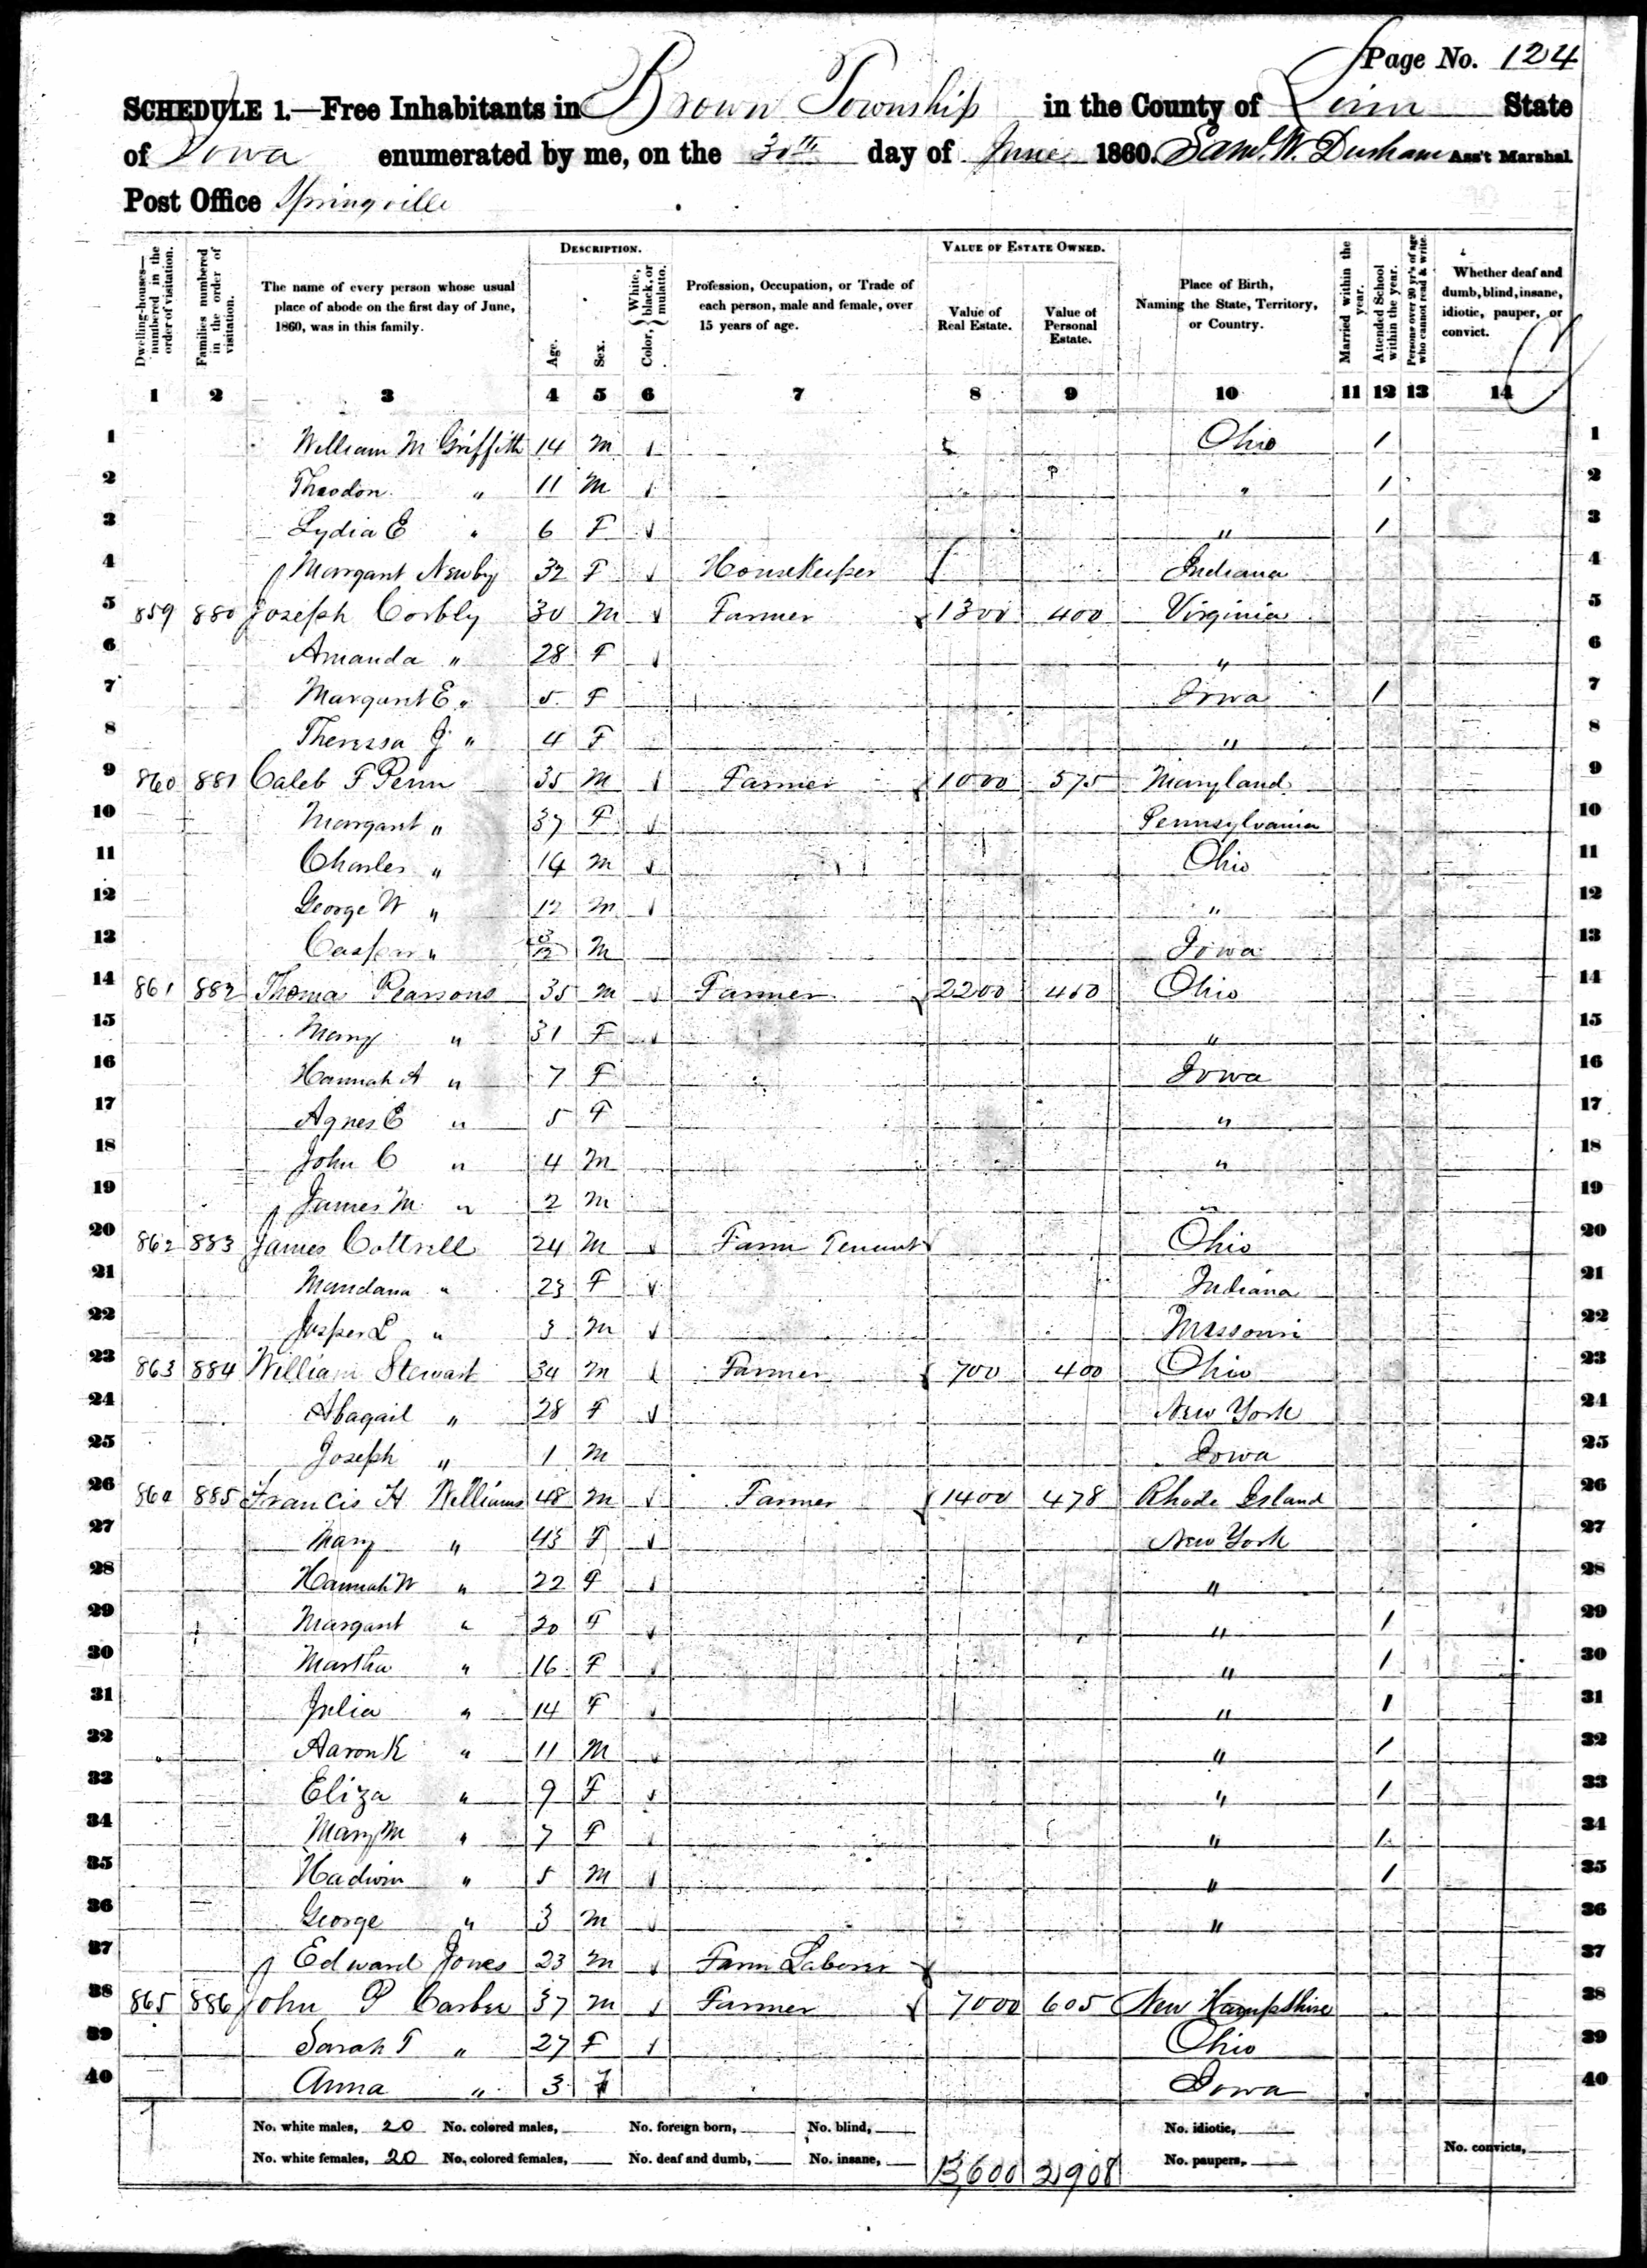 Page No. 124
SCHEDULE 1.—Free Inhabitants in Brown Township in the County of Linn State
of Iowa enumerated by me, on the 30th day of June 1860. Saml. W. Durham Ass't Marshal.
Post Office Springville
Dwelling-houses—numbered in the order of visitation.
Families numbered in the order of visitation.
The name of every person whose usual place of abode on the first day of June, 1860, was in this family.
DESCRIPTION.
Age.
Sex.
Color, { White, black, or mulatto.
Profession, Occupation, or Trade of each person, male and female, over 15 years of age.
VALUE OF ESTATE OWNED.
Value of Real Estate.
Value of Personal Estate.
Place of Birth, Naming the State, Territory, or Country.
Married within the year.
Attended School within the year.
Persons over 20 yr's of age who cannot read & write.
Whether deaf and dumb, blind, insane, idiotic, pauper, or convict.
1 2 3 4 5 6 7 8 9 10 11 12 13 14
1 William M Griffith 14 M Ohio / 1
2 Theodon " 11 M " / 2
3 Lydia E " 6 F " / 3
4 Margant Newby 32 F Housekeeper Indiana 4
5 859 880 Joseph Corbly 30 M Farmer 1300 400 Virginia 5
6 Amanda " 28 F " 6
7 Margaret E " 5 F Iowa / 7
8 Theressa J " 4 F " 8
9 860 881 Caleb F Penn 35 M Farmer 1000 575 Maryland 9
10 Margant " 37 F Pennsylvania 10
11 Charles " 14 M Ohio 11
12 George W " 12 M " 12
13 " 3/12 M Iowa 13
14 861 882 Thoma Pearsons 35 M Farmer 2200 450 Ohio 14
15 Mary " 31 F " 15
16 Hannah A " 7 F Iowa 16
17 Agnes E " 5 F " 17
18 John C " 4 M " 18
19 James M " 2 M " 19
20 862 883 James Cottrell 24 M Farm Tenant Ohio 20
21 Mandana " 23 F Indiana 21
22 Jasper L " 3 M Missouri 22
23 863 884 William Stewart 34 M Farmer 700 400 Ohio 23
24 Abagail " 28 F New York 24
25 Joseph " 1 M Iowa 25
26 864 885 Francis H Williams 48 M Farmer 1400 478 Rhode Island 26
27 Mary " 43 F New York 27
28 Hannah W " 22 F " 28
29 Margant " 20 F " / 29
30 Martha " 16 F " / 30
31 Julia " 14 F " / 31
32 Aaron K " 11 M " / 32
33 Eliza " 9 F " / 33
34 Mary M " 7 F " / 34
35 Hadwin " 5 M " / 35
36 George " 3 M " 36
37 Edward Jones 23 M Farm Laborer 37
38 865 886 John P 37 M Farmer 7000 605 New Hampshire 38
39 Sarah T " 27 F Ohio 39
40 Anna " 3 F Iowa 40
No. white males, 20 No. colored males, No. foreign born, No. blind, No. idiotic,
No. white females, 20 No. colored females, No. deaf and dumb, No. insane, 13,600 2,908 No. paupers, No. convicts,